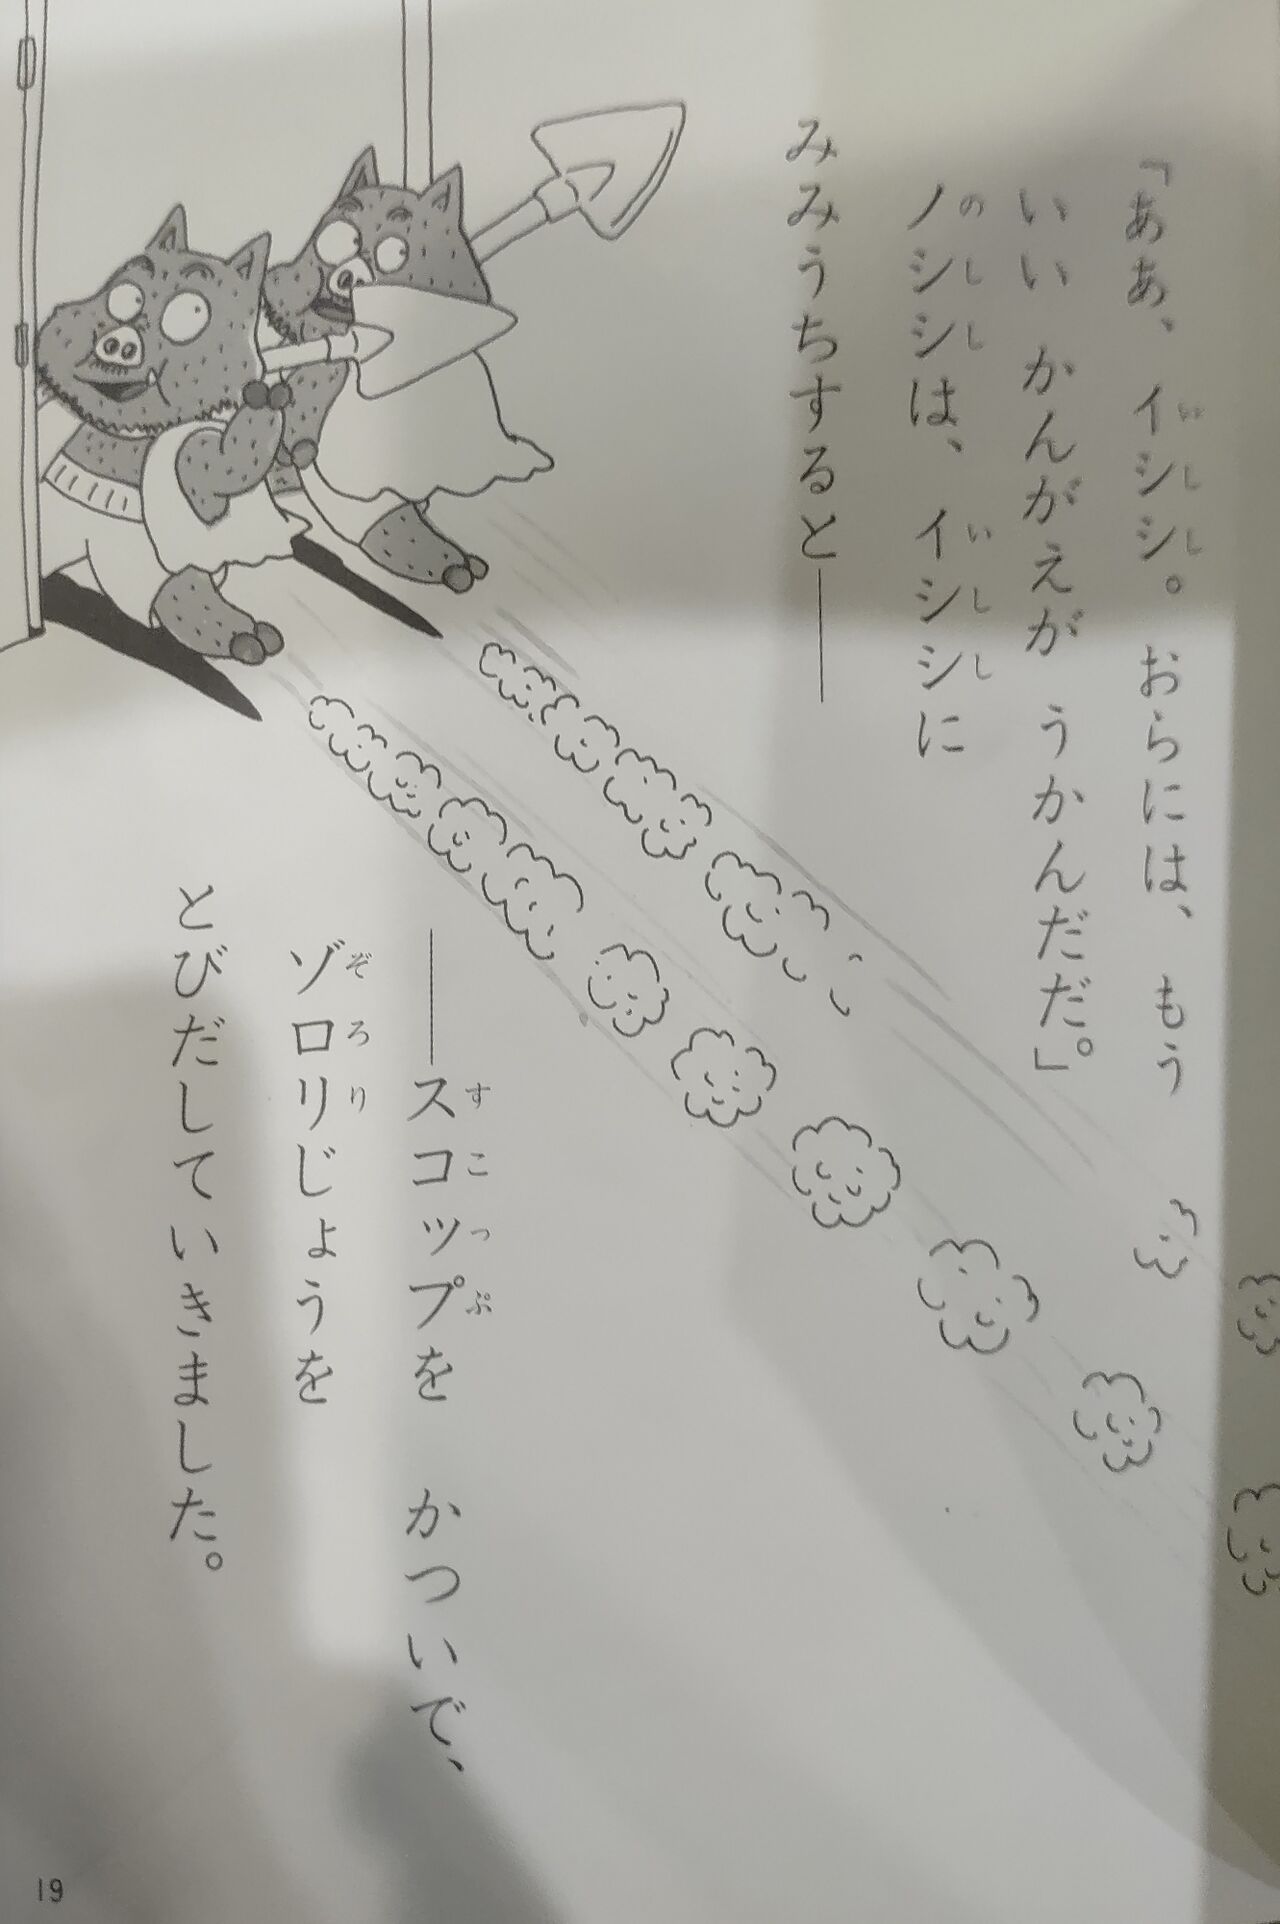 「ああ、イシシ。おらには、もう
いい かんがえが うかんだだ。」
ノシシは、イシシに
みみうちすると――
――スコップを かついで、
ゾロリじょうを
とびだしていきました。
19